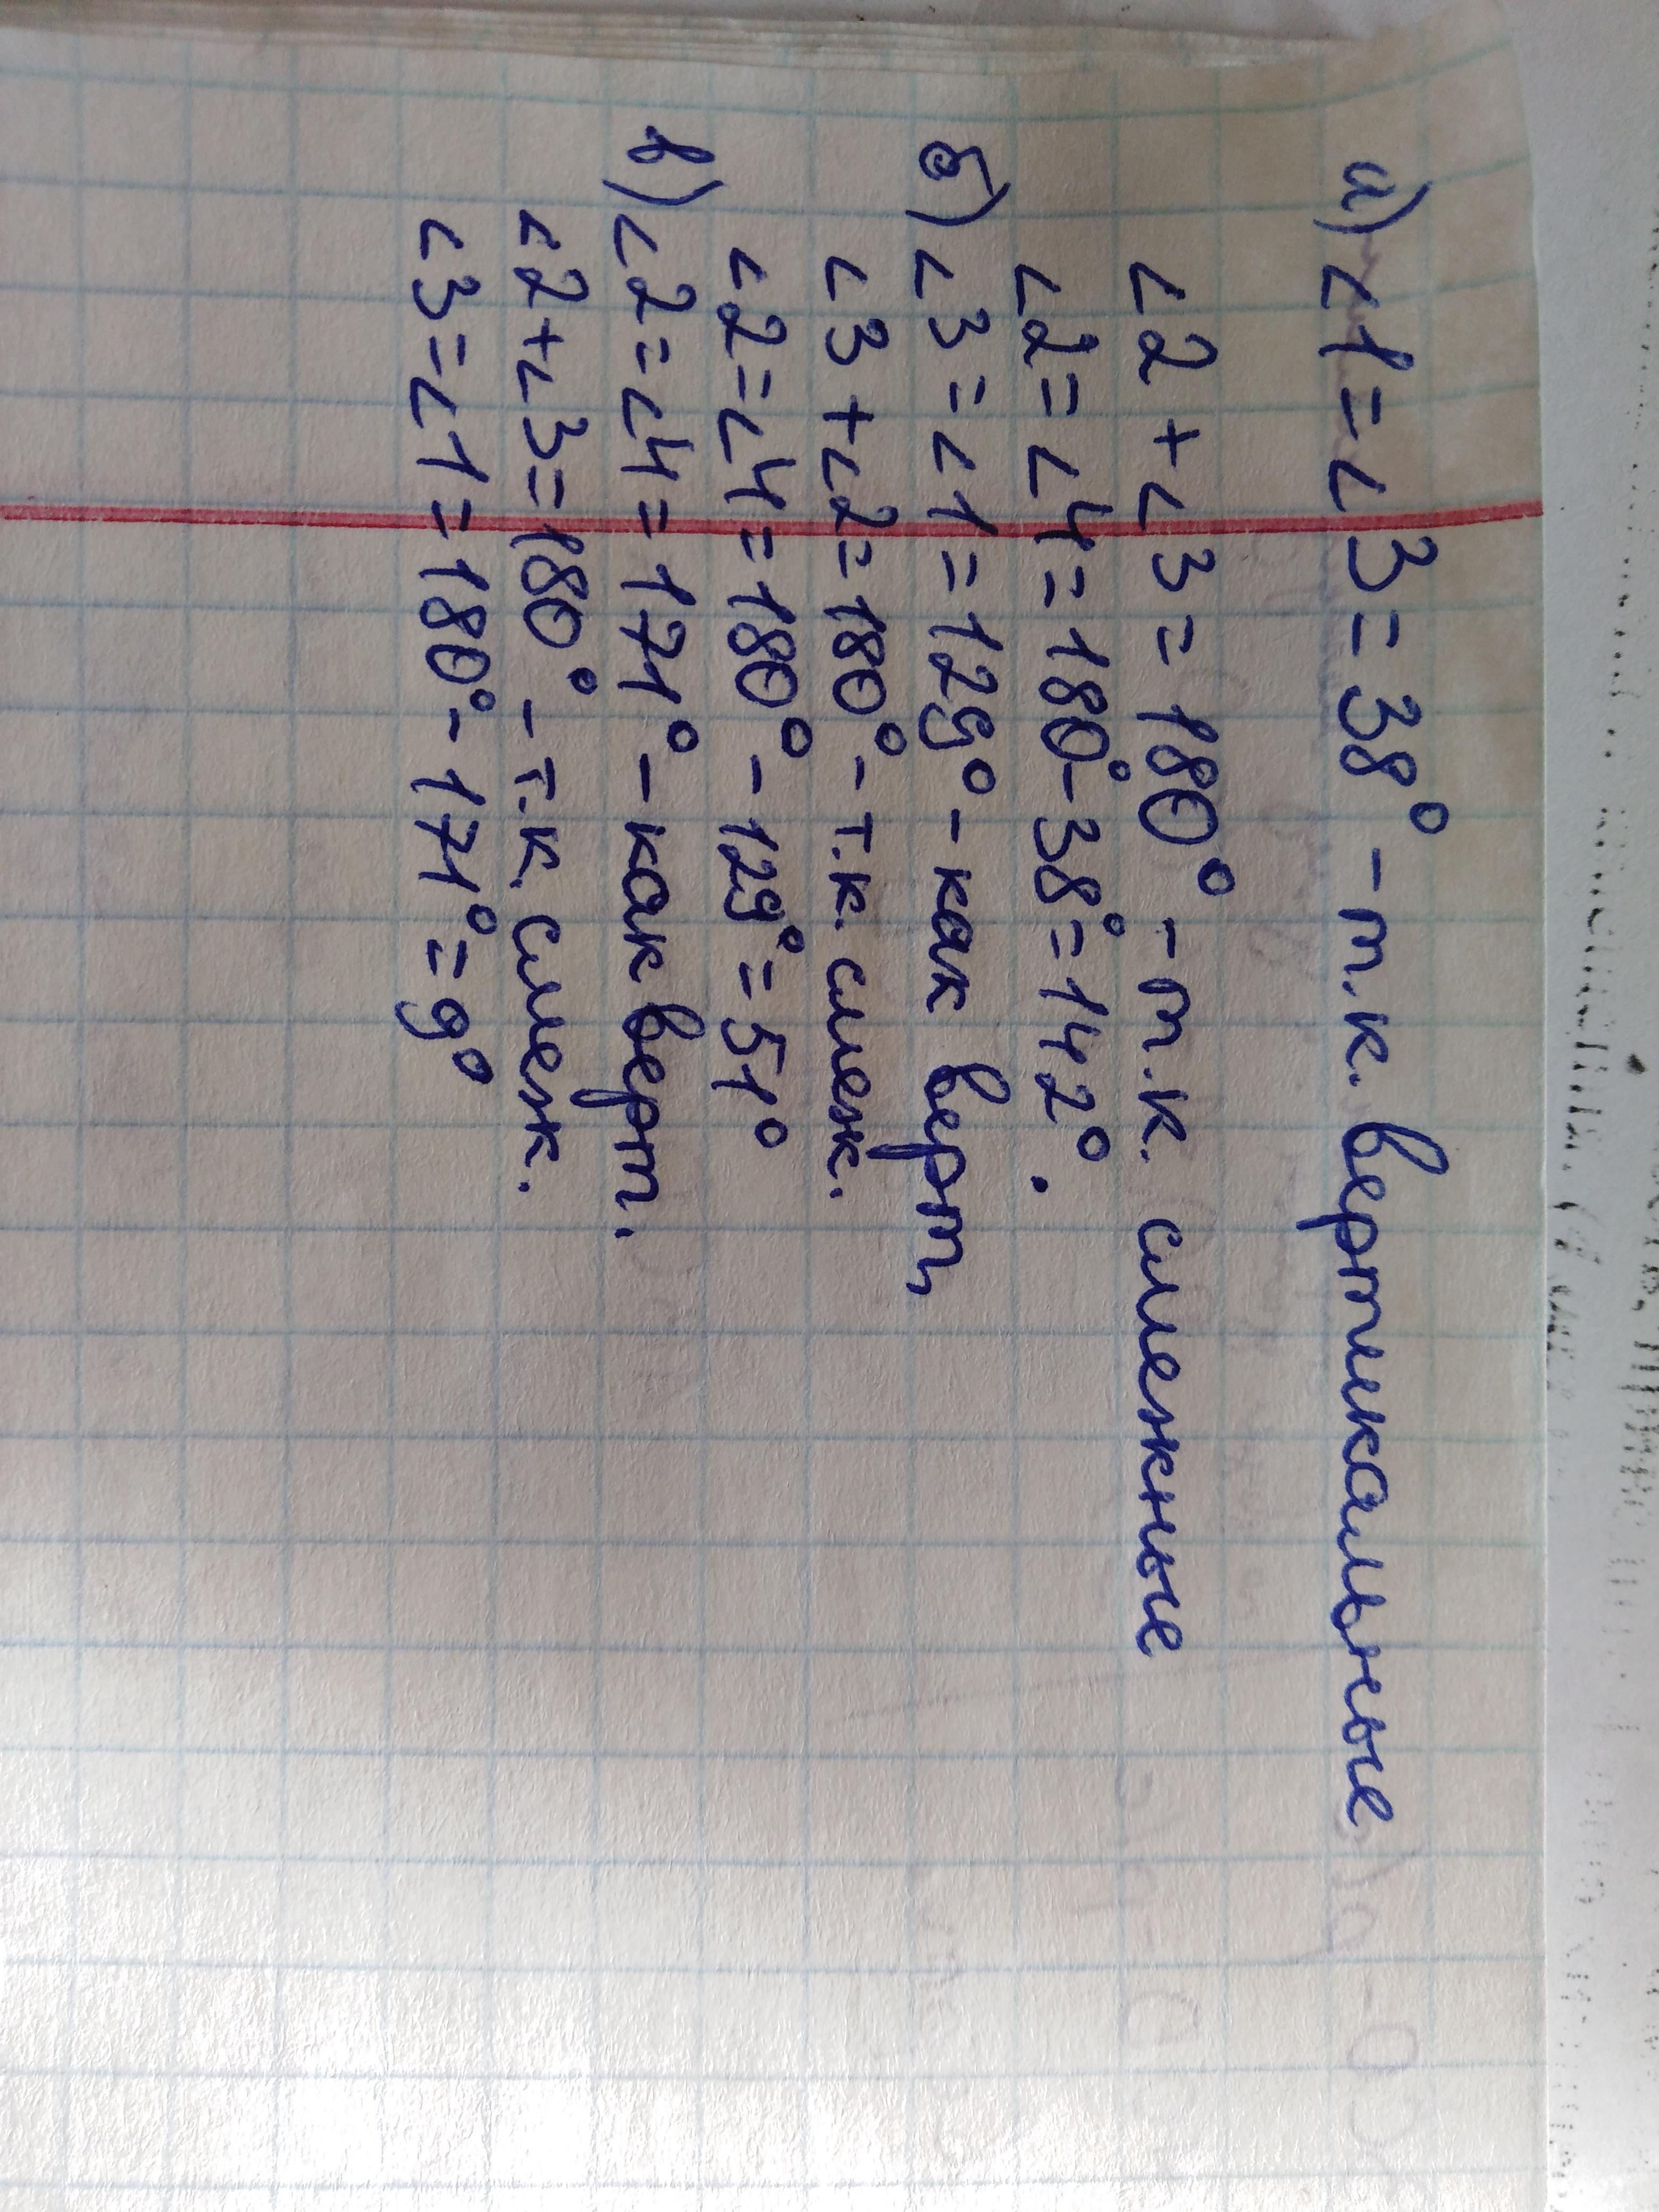 а) ∠1=∠3=38° – т.к. вертикальные
∠2+∠3=180° – т.к. смежные
∠2=∠4=180°-38°=142°.
б) ∠3=∠1=129° – как верт,
∠3+∠2=180° – т.к. смеж.
∠2=∠4=180°-129°=51°
в) ∠2=∠4=171° – как верт.
∠2+∠3=180° – т.к. смеж.
∠3=∠1=180°-171°=9°